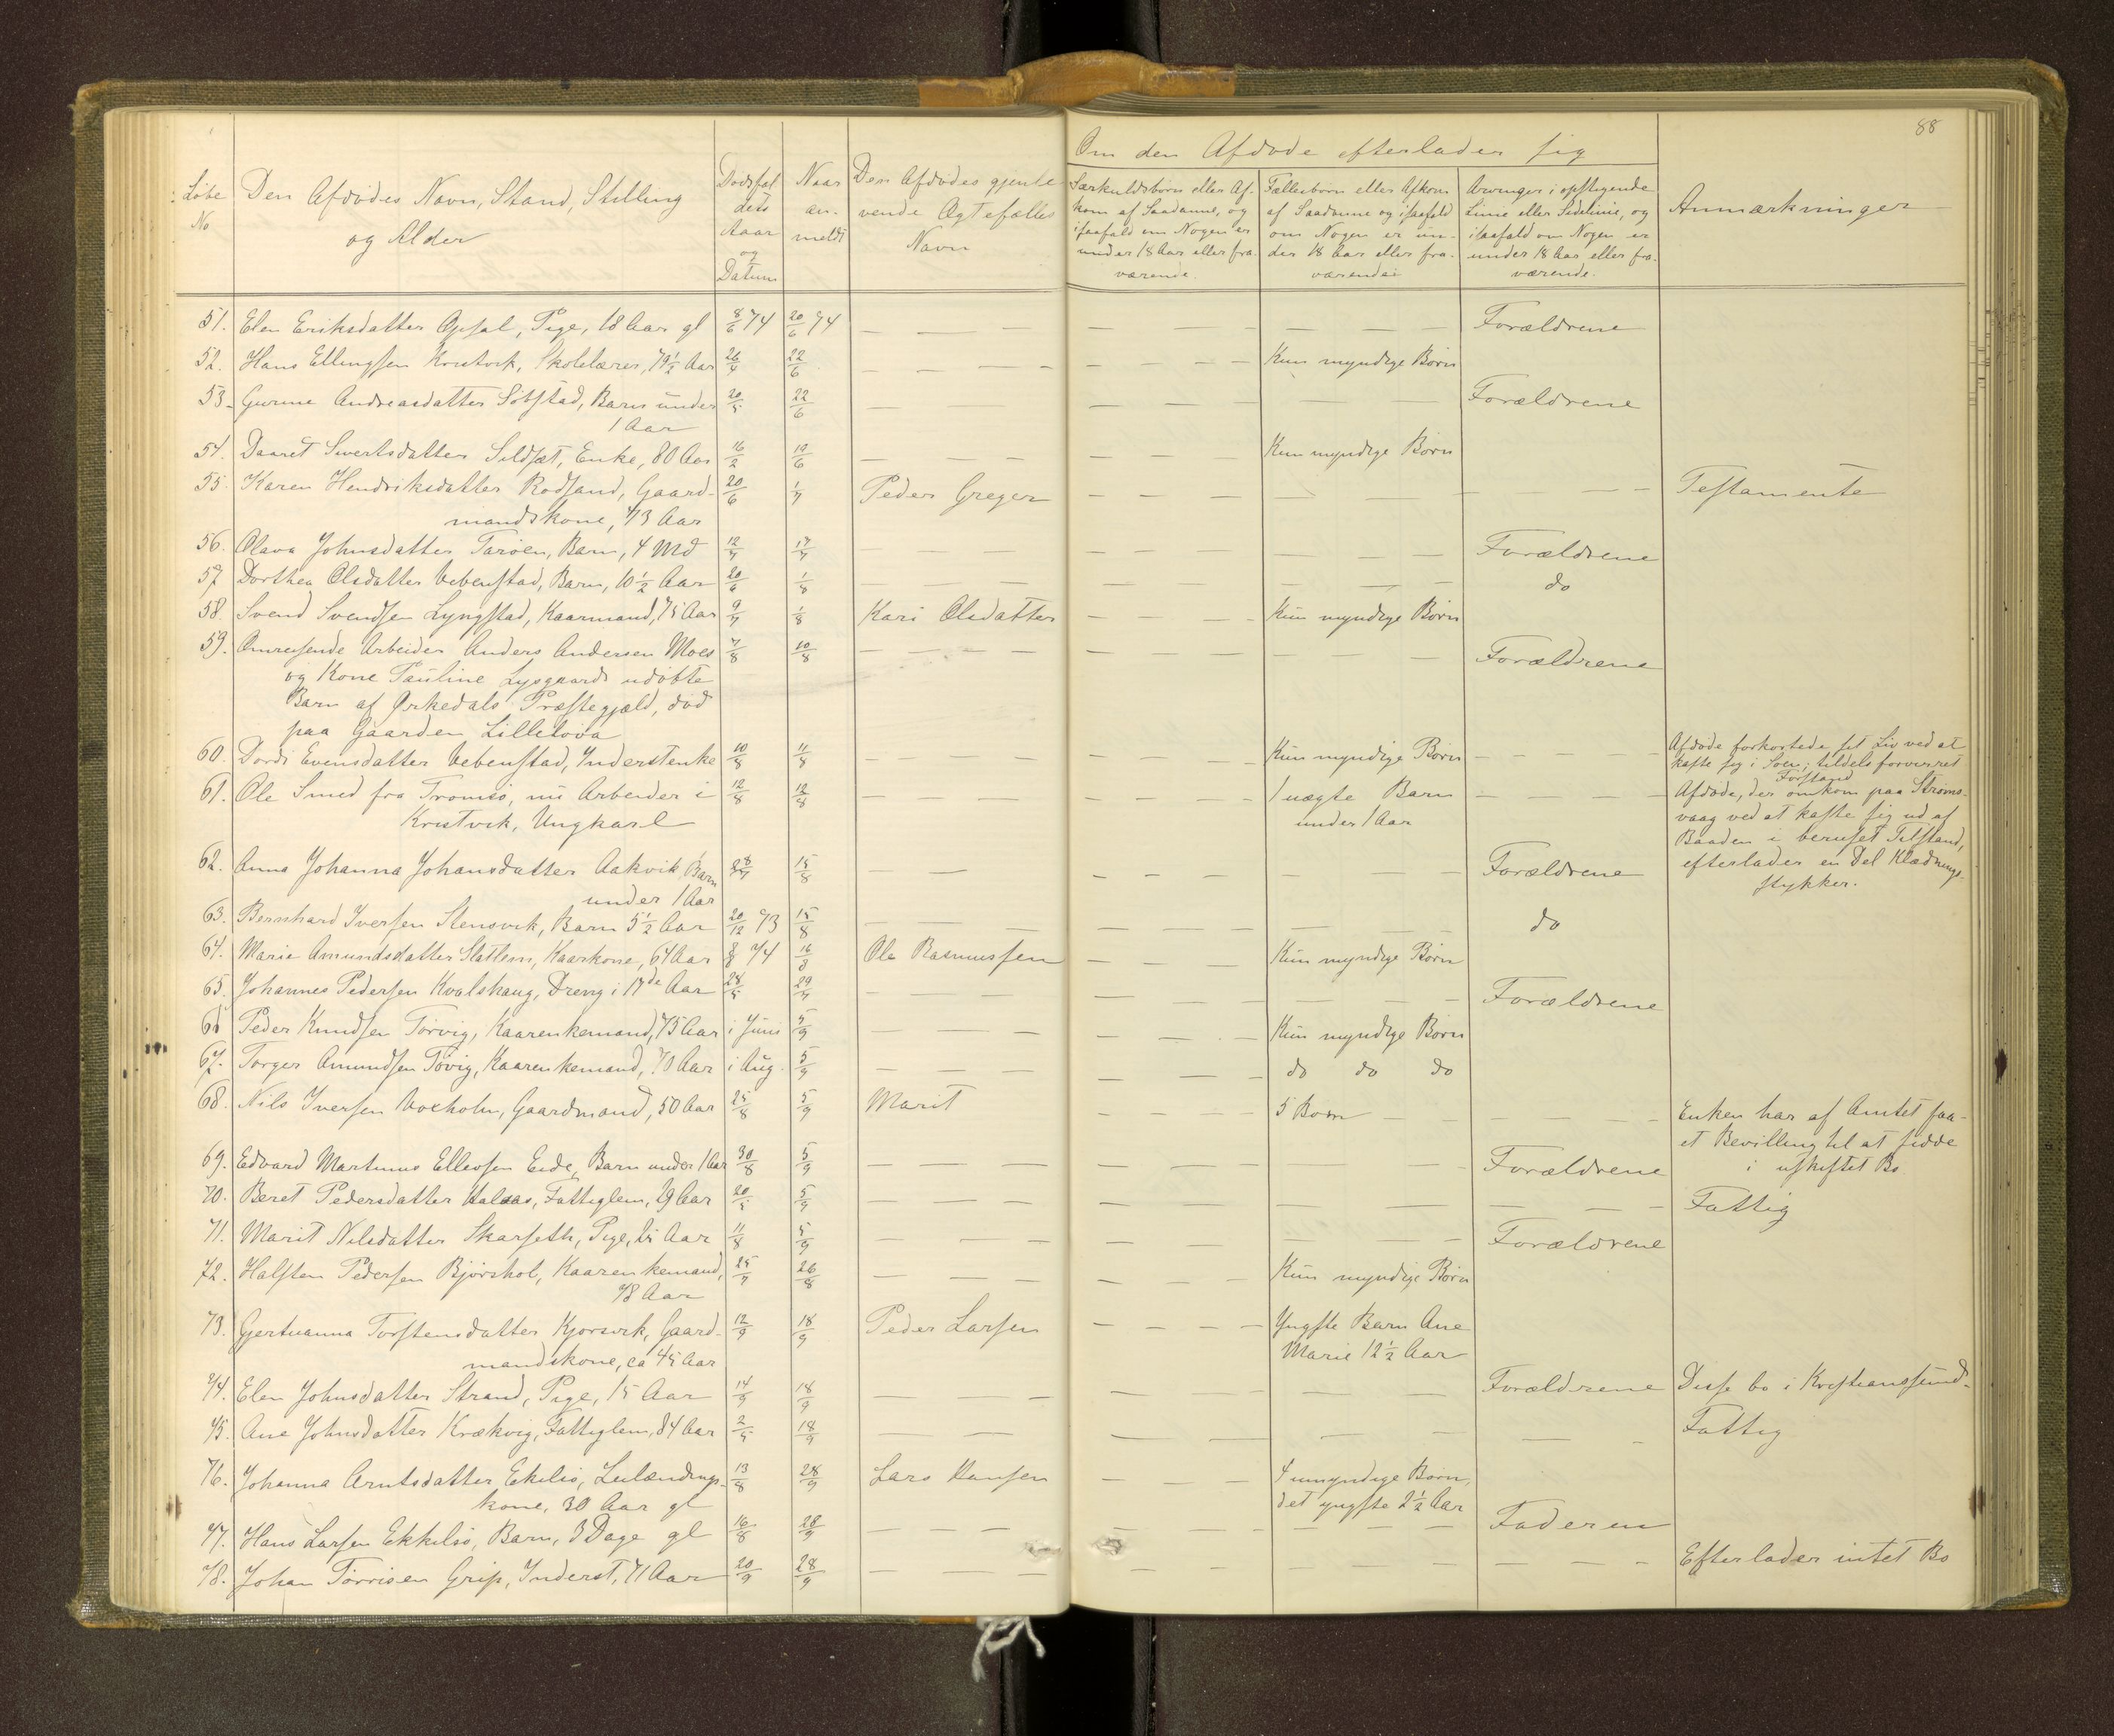 88
Løbe No
Den Afdødes Navn, Stand, Stilling og Alder
Dødsfaldets Aaar og Datum
Naar anmeldt
Den Afdødes gjenlevende Ægtefælles Navn
Om den Afdøde efterlader sig
Særkuldsbørn eller Afkom af Saadanne, og isaafald om Nogen er under 18 Aar eller fraværende.
Fællesbørn eller Afkom af Saadanne og isaafald om Nogen er under 18 Aar eller fraværende
Arvinger i opstigende Linie eller Sidelinie, og isaafald om Nogen er under 18 Aar eller fraværende.
Anmærkninger
51. Elen Eriksdatter Opsal, Pige, 18 Aar gl 8/6 74 20/6 74 — — — Forældrene
52. Hans Ellingsen Kristvik, Skolelærer, 79½ Aar 26/4 22/6 — — — Kun myndige Børn
53. Gurine Andreasdatter Solstad, Barn under 20/5 22/6 — — — Forældrene
1 Aar
54. Daaret Sivertsdatter Sildset, Enke, 80 Aar 16/2 19/6 — — — Kun myndige Børn
55. Karen Hendriksdatter Rodsand, Gaard- 20/6 1/7 Peder Greger — — — Testamente
mandskone, 73 Aar
56. Olava Johnsdatter Tarøen, Barn, 4 Md 12/7 17/7 — — — Forældrene
57 Dorthea Olsdatter Vebenstad, Barn, 10½ Aar 20/6 1/8 — — — do
58. Svend Svendsen Lyngstad, Kaarmand, 75 Aar 9/7 1/8 Kari Olsdatter — — — Kun myndige Børn
59. Omreisende Arbeider Anders Andersen Moes 7/8 10/8 — — — Forældrene
og Kone Pauline Lysgaards udøbte
Barn af Ørkedals Præstegjæld, død
paa Gaarden Lilleløva
60. Dordi Evensdatter Vebenstad, Inderstenke 10/8 11/8 — — — Kun myndige Børn — — — Afdøde forkortede sit Liv ved at
kaste sig i Søen; tildels forvirret
Forstand
61. Ole Smed fra Tromsø, nu Arbeider i 12/8 12/8 — — — 1 uægte Barn — — — Afdøde, der omkom paa Strøms-
Kristvik, Ungkarl under 1 Aar vaag ved at kaste sig ud af
Baaden i beruset Tilstand,
efterlader en Del Klædnings-
stykker.
62. Anna Johanna Johansdatter Aakvik, Barn 28/7 15/8 — — — Forældrene
under 1 Aar
63. Bernhard Iversen Stensvik, Barn 5½ Aar 20/12 73 15/8 — — — do
64. Marie Amundsdatter Slatlem, Kaarkone, 64 Aar 8/8 74 16/8 Ole Rasmussen — — — Kun myndige Børn
65. Johannes Pedersen Kvalshaug, Dreng i 17de Aar 28/5 29/7 — — — Forældrene
66 Peder Knudsen Torvig, Kaarenkemand, 75 Aar i Juni 5/9 — — — Kun myndige Børn
67. Torger Amundsen Tøvig, Kaarenkemand, 70 Aar i Aug. 5/9 — — — do do do
68. Nils Iversen Voxholm, Gaardmand, 50 Aar 25/8 5/9 Marit — — — 5 Børn — — — Enken har af Amtet faa-
et Bevilling til at sidde
i uskiftet Bo.
69. Edvard Martinus Ellevsen Eide, Barn under 1 Aar 30/8 5/9 — — — Forældrene
70. Beret Pedersdatter Kalsaas, Fattiglem, 29 Aar 20/5 5/9 — — — Fattig
71. Marit Nilsdatter Skarseth, Pige, 2½ Aar 11/8 5/9 — — — Forældrene
72. Halsten Pedersen Bjørshol, Kaarenkemand, 25/7 26/8 — — — Kun myndige Børn
78 Aar
73. Gjertvanna Torstensdatter Kjørsvik, Gaard- 12/9 18/9 Peder Larsen — — — Yngste Barn Ane
mandskone, ca 45 Aar Marie 12½ Aar
74. Elen Johnsdatter Strand, Pige, 15 Aar 14/9 18/9 — — — Forældrene Disse bo i Kristianssund.
75. Ane Johnsdatter Krækvig, Fattiglem, 84 Aar 2/5 18/9 — — — Fattig
76. Johanna Arntsdatter Ekilsø, Leilændings- 13/8 28/9 Lars Hansen — — 4 umyndige Børn,
kone, 30 Aar gl det yngste 2½ Aar
77. Hans Larsen Ekkilsø, Barn, 3 Dage gl 16/8 28/9 — — — Faderen
78. Johan Tørrisen Grip, Inderst, 71 Aar 20/9 28/9 — — — Efterlader intet Bo